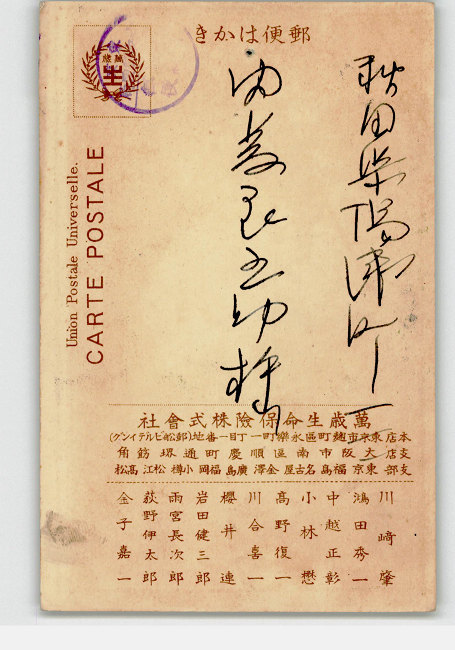 郵便はかき
萬歳
生
Union Postale Universelle.
CARTE POSTALE
秋田
町
良
助様
萬歳生命保險株式會社
本店東京市麹町區永樂町一丁目一番地(郵船ビルデイング)
支店大阪市南區順慶町通堺筋角
支部 東京 福島 名古屋 金澤 廣島 福岡 小樽 松江 髙松
川崎肇
鴻田秀一
中越正彰
小林懋
髙野復一
川合喜一
櫻井連
岩田健三郎
雨宮長次郎
荻野伊太郎
金子嘉一